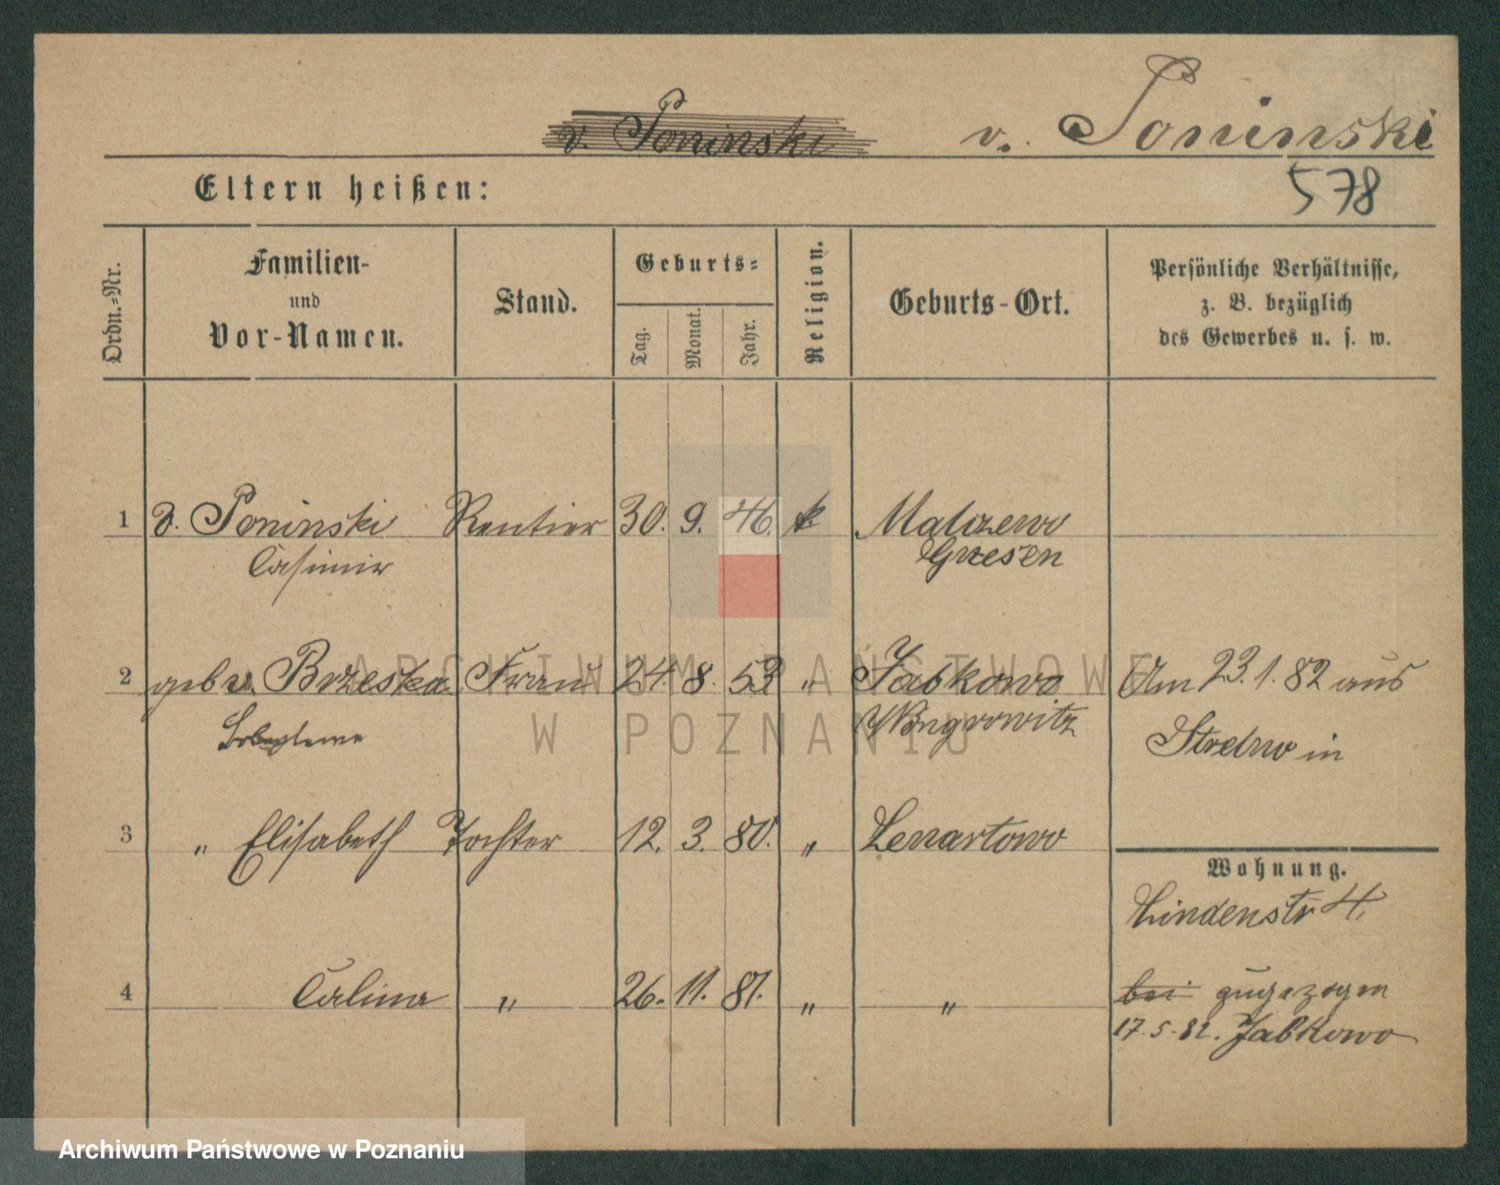 v. Poninski v. Poninski
Eltern heißen:
578
Ordn.-Nr.
Familien-
und
Vor-Namen.
Stand.
Geburts-
Tag.
Monat.
Jahr.
Religion.
Geburts-Ort.
Persönliche Verhältnisse,
z. B. bezüglich
des Gewerbes u. s. w.
1 v. Poninski Rentier 30. 9. 46. k
Casimir Gnesen
2 geb v. Brzeska Frau 24. 8. 53 " Jabkowo Am 23.1.82 aus
Wongrowitz
in
3 " Elisabeth Tochter 12. 3. 80. " Lenartowo
Wohnung.
Lindenstr 4.
4 Calina " 26. 11. 81. " "
bei zugezogen
17.5.82. Jabkowo
ARCHIWUM PAŃSTWOWE
W POZNANIU
Archiwum Państwowe w Poznaniu